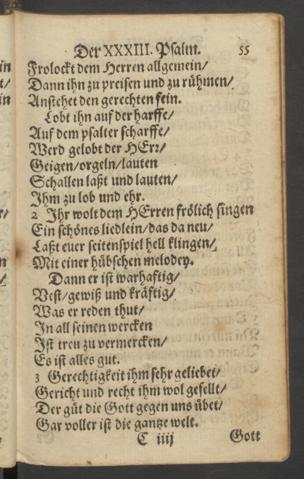 Der XXXIII. Psalm. 55
Frolockt dem Herren allgemein/
Dann ihn zu preisen und zu rühmen/
Anstehet den gerechten fein.
Lobt ihn auf der harffe/
Auf dem psalter scharffe/
Werd gelobt der HErr/
Geigen/orgeln/lauten
Schallen laßt und lauten/
Ihm zu lob und ehr.
2 Ihr wolt dem HErren frölich singen
Ein schönes liedlein/das da neu/
Laßt euer seitenspiel hell klingen/
Mit einer hübschen melodey.
Dann er ist warhaftig/
Vest/gewiß und kräftig/
Was er reden thut/
In all seinen wercken
Ist treu zu vermercken/
Es ist alles gut.
3 Gerechtigkeit ihm sehr geliebet/
Gericht und recht ihm wol gefellt/
Der güt die Gott gegen uns übet/
Gar voller ist die gantze welt.
C iiij Gott